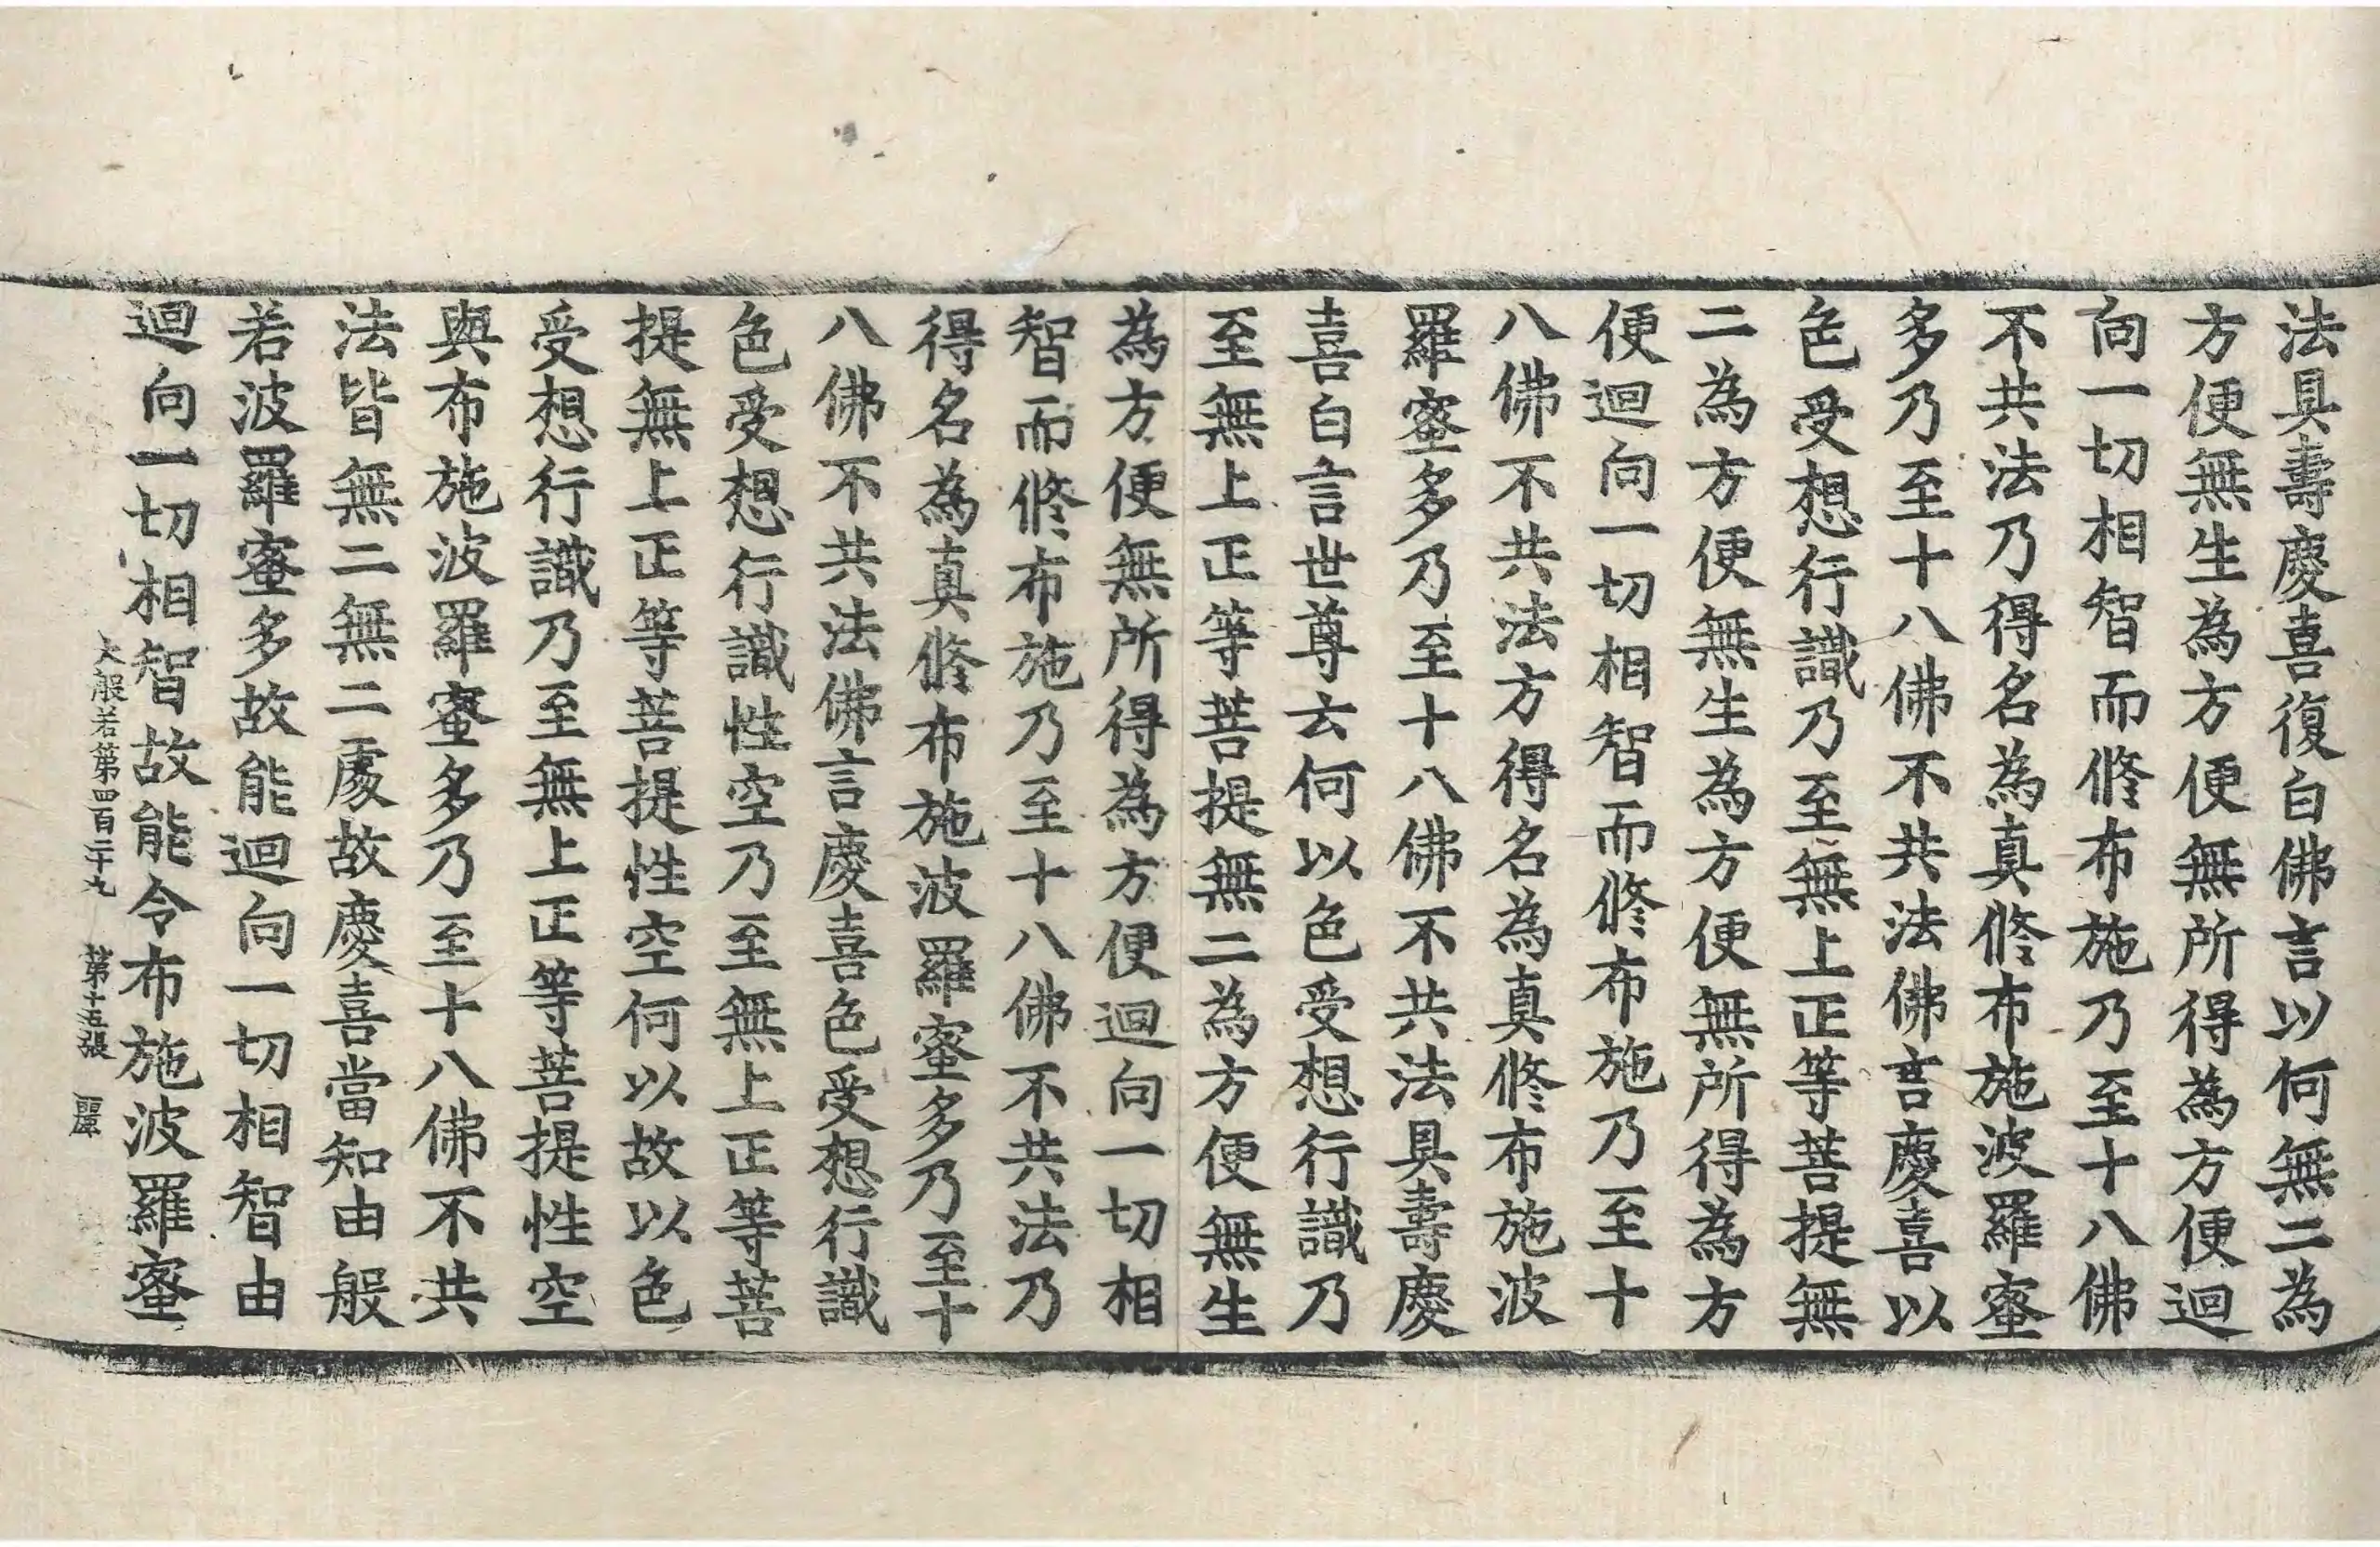 法具壽慶喜復白佛言以何無二為
方便無生為方便無所得為方便迴
向一切相智而修布施乃至十八佛
不共法乃得名為真修布施波羅蜜
多乃至十八佛不共法佛言慶喜以
色受想行識乃至無上正等菩提無
二為方便無生為方便無所得為方
便迴向一切相智而修布施乃至十
八佛不共法方得名為真修布施波
羅蜜多乃至十八佛不共法具壽慶
喜白言世尊云何以色受想行識乃
至無上正等菩提無二為方便無生
為方便無所得為方便迴向一切相
智而修布施乃至十八佛不共法乃
得名為真修布施波羅蜜多乃至十
八佛不共法佛言慶喜色受想行識
色受想行識性空乃至無上正等菩
提無上正等菩提性空何以故以色
受想行識乃至無上正等菩提性空
與布施波羅蜜多乃至十八佛不共
法皆無二無二處故慶喜當知由般
若波羅蜜多故能迴向一切相智由
迴向一切相智故能令布施波羅蜜
大般若第四百二十九 第十五張 麗